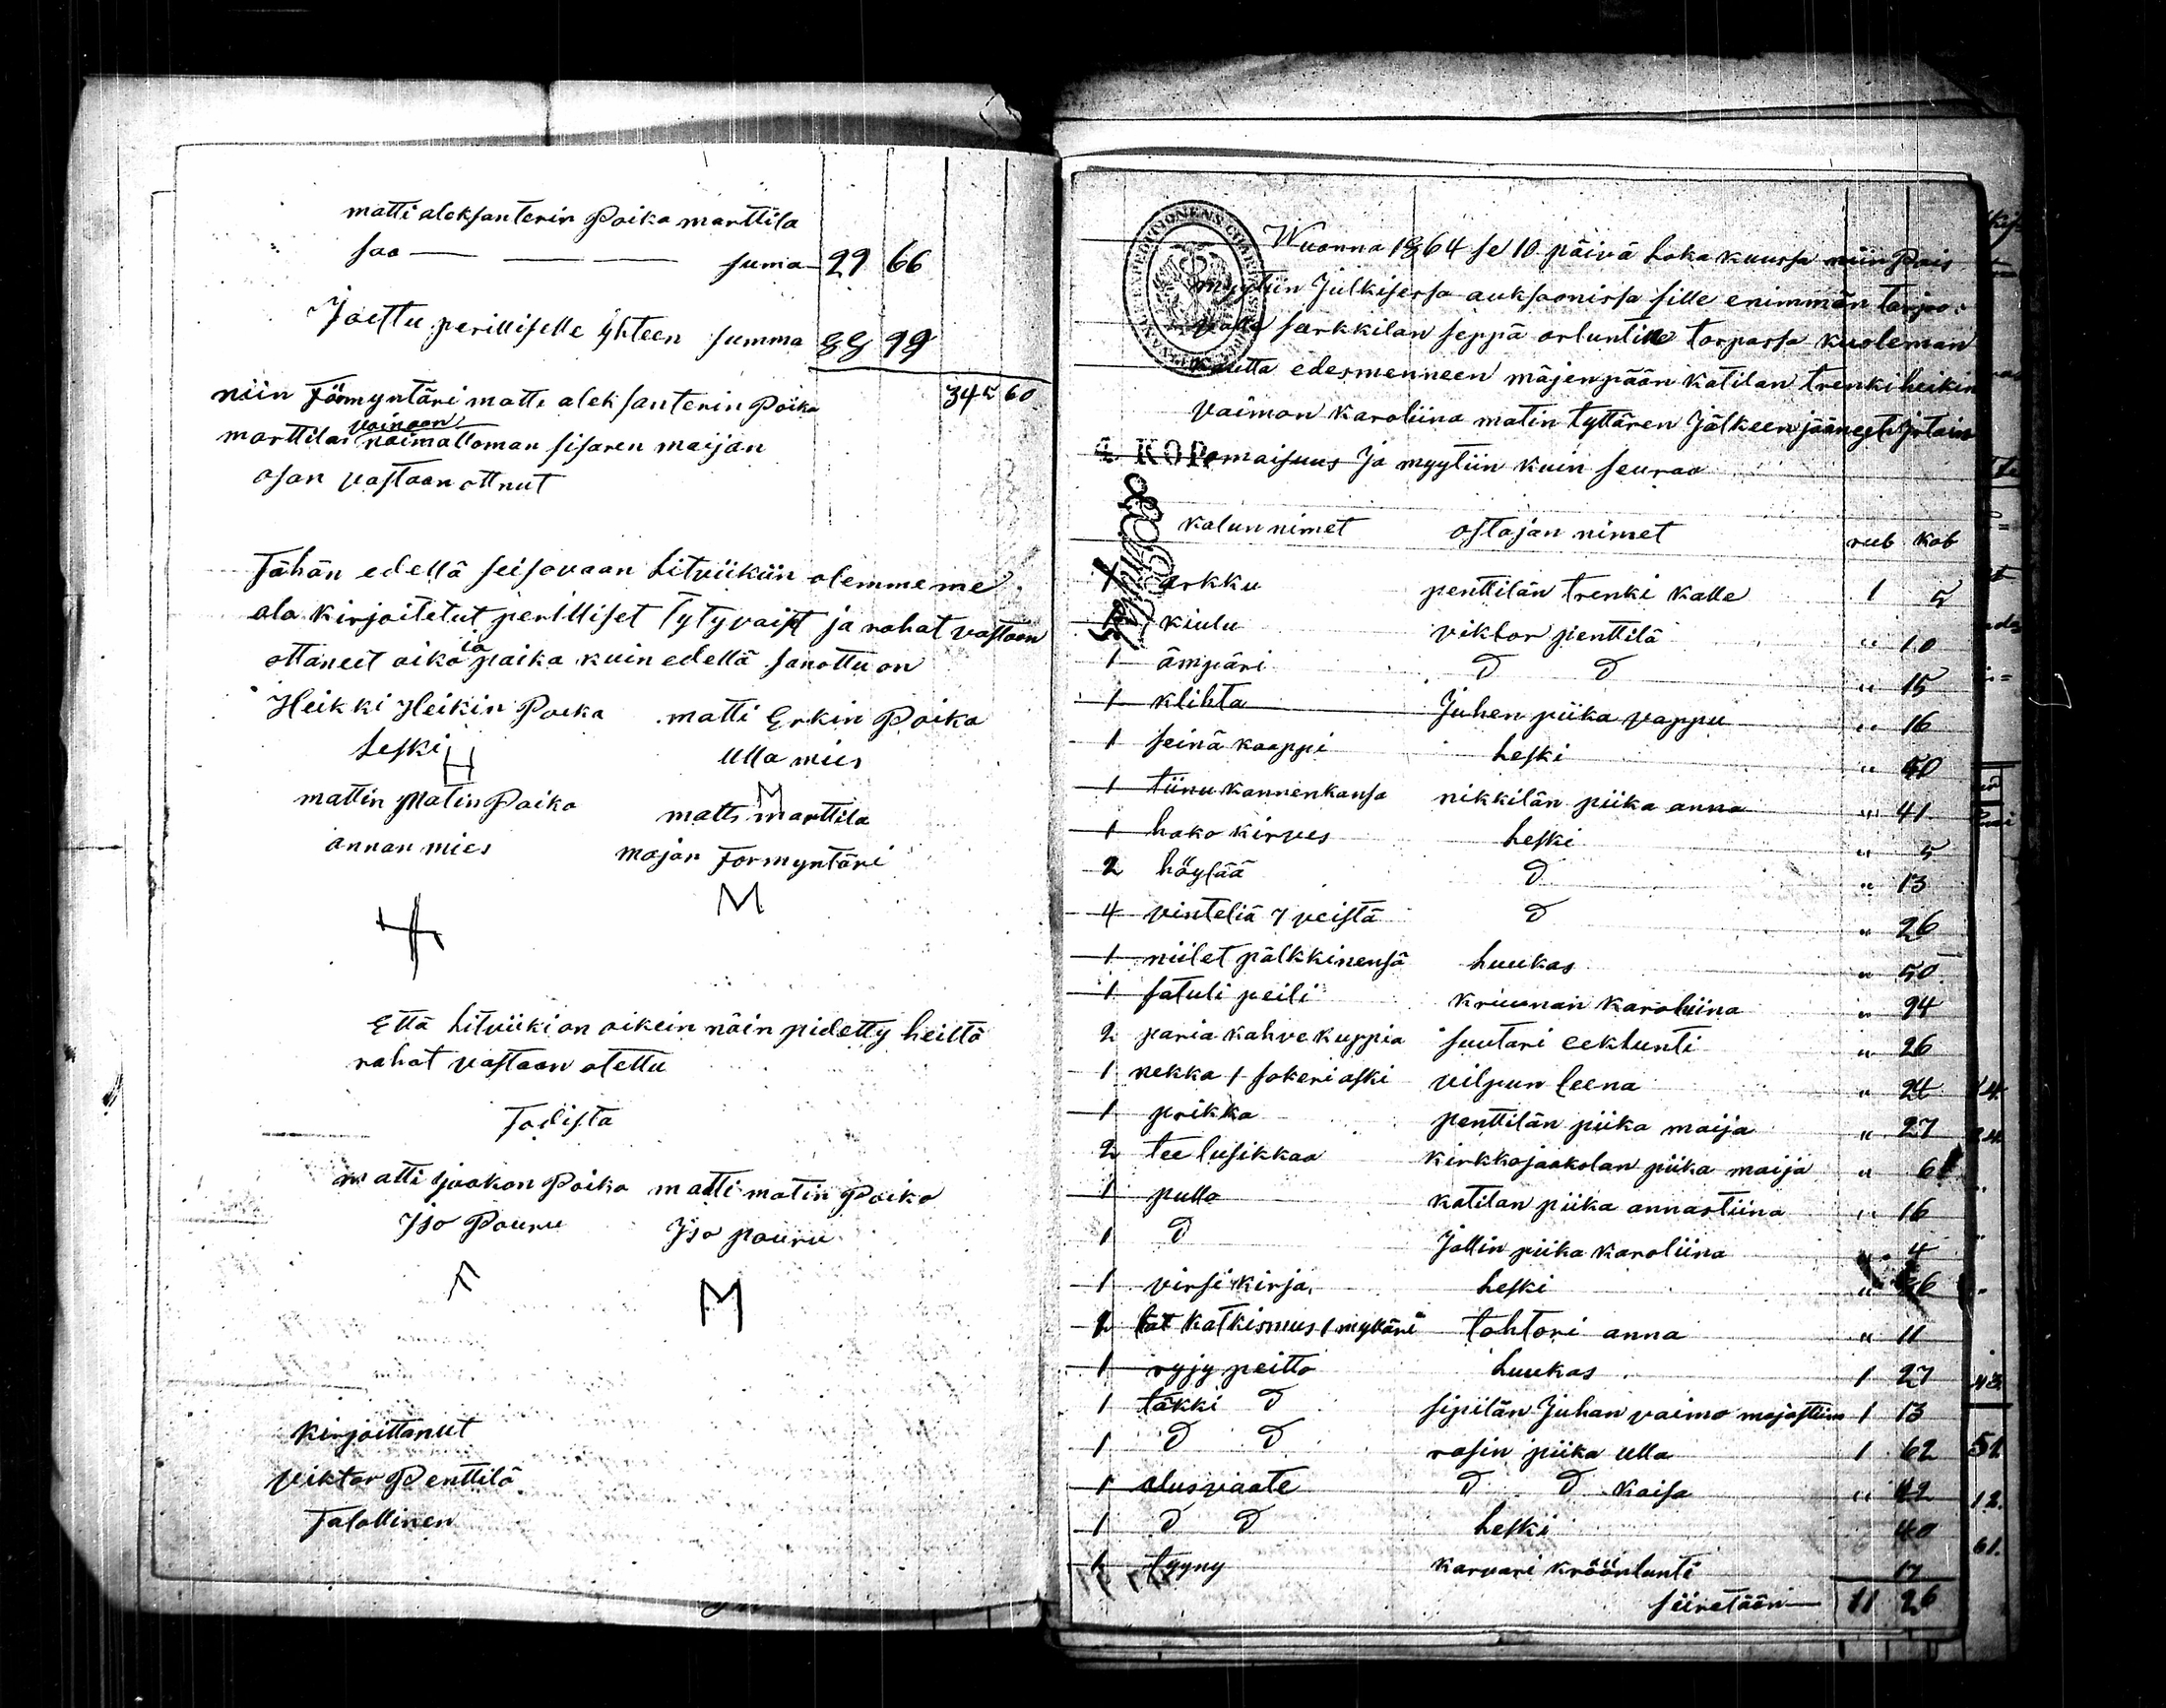 matti aleksanterin Poika marttila
saa — — — suma 29 66
Jaettu perilliselle yhteen summa 88 99
niin Förmyntäri matti aleksanterin Poika 345 60
marttilas vaimoon naimattoman sisaren maijan
osan vastaan ottnut
Tähän edellä seisovaan Litviikiin olemme me
ala kirjoitetut perilliset Tytyvaist ja rahat vastaan
ottaneet aika ja paika kuin edellä sanottu on
Heikki Heikin Poika matti Erkin Poika
Leski H Ulla mies
M
mattin Matin Poika matti marttila
annan mies majan Formyntäri
M
Että Litviiki on oikein näin pidetty heiltä
rahat vastaan otettu
Todista
matti jaakon Poika matti matin Poika
Iso Pouru Iso pouru
M
kirjoittanut
viktor Penttilä
Talollinen
Wuonna 1864 se 10 päivä Loka kuussa niin Pois
myytiin Julkisessa auksoonissa sille enimmän tarjo-
valle särkkilan seppä orluntin torpassa kuoleman
kautta edesmenneen mäjenpään katilan trenki heikin
vaimon karoliina matin tyttären Jälkeen jääneet Jrtain
4 KOP. omaisuus Ja myytiin kuin seuraa
kalun nimet ostajan nimet rub kob
1 arkku penttilän trenki kalle 1 5
1 kiulu viktor penttilä " 10
1 ämpäri D D " 15
1 klihta Juhen piika vappu " 16
1 seinä kaappi Leski " 50
1 tiinu kannenkansa nikkilän piika anna " 41
1 hako kirves Leski " 5
2 höylää D " 13
4 vinteliä 7 veistä D " 26
1 niilet pälkkinensä Luukas " 50
1 satuli peili kruunan karoliina " 94
2 paria kahvekuppia suutari eeklunti " 26
1 nekka 1 sokeri aski vilpun leena " 24
1 prikka penttilän piika maija " 27
2 tee lusikkaa kirkkojaakolan piika maija " 6
1 pullo katilan piika annastiina " 16
1 D Jallin piika karoliina " 4
1 virsi kirja Leski " 26
1 kat katkismus 1 myttäri tohtori anna " 11
1 ryjy peitto Luukas 1 27
1 täkki D sipilän Juhan vaimo majastiina 1 13
1 D D rasin piika ulla 1 62
1 alusvaate D D kaisa " 42
1 D D Leski 40
1 tyyny karvari kröönlunti 17
siiretään 11 26